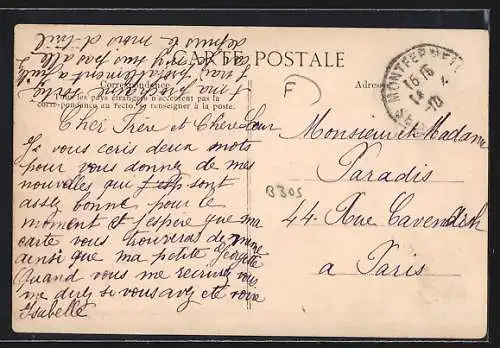 CARTE POSTALE
Correspondance
Adres
Tous les pays étrangers n'acceptent pas la
correspondance au recto, se renseigner à la poste.
F
MONTFERMEIL
16 15
Cher Frère et Chère Sœur
Je vous ecris deux mots
pour vous donnez de mes
nouvelles qui sont
assez bonne pour le
moment et j'espère que ma
carte vous trouveras de meme
ainsi que ma petite Georgette
Quand vous me recrirez vous
me direz si vous avez ete voire
Isabelle
depuis le mois d'
Monsieur et Madame
Paradis
44 Rue Cavendish
a Paris
B305